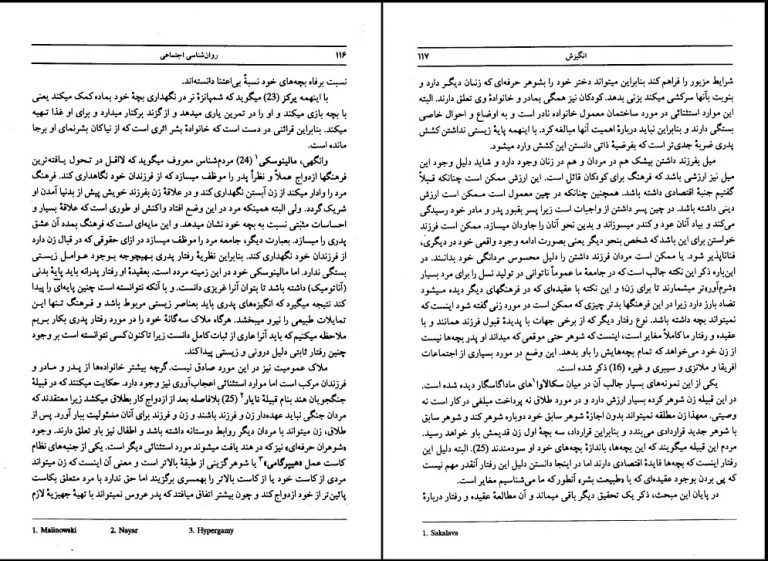 ۱۱۶ روان‌شناسی اجتماعی
نسبت برفاه بچه‌های خود نسبةً بی‌اعتنا دانسته‌اند.
با اینهمه یرکز (23) میگوید که شمپانزهٔ نر در نگهداری بچهٔ خود بماده کمک میکند یعنی
با بچه بازی میکند و او را در تمرین یاری میدهد و از گزند برکنار میدارد و برای او غذا تهیه
میکند. بنابراین قرائنی در دست است که خانوادهٔ بشر اثری است که از نیاکان بشرنمای او برجا
مانده است.
وانگهی، مالینوسکی1 (24) مردم‌شناس معروف میگوید که لااقل در تحول یافته‌ترین
فرهنگها ازدواج عملاً و نظراً پدر را موظف میسازد که از فرزندان خود نگاهداری کند. فرهنگ
مرد را وادار میکند از زن آبستن نگهداری کند و در علاقهٔ زن بفرزند خویش پیش از بدنیا آمدن او
شریک گردد. ولی البته همینکه مرد در این وضع افتاد واکنش او طوری است که علاقهٔ بسیار و
احساسات مثبتی نسبت به بچه خود نشان میدهد. و این مایه‌ای است که فرهنگ بمدد آن عشق
پدری را میسازد. بعبارت دیگر، جامعه مرد را موظف میسازد در ازای حقوقی که در قبال زن دارد
از فرزندان خود نگهداری کند. بنابراین نظریهٔ رفتار پدری بهیچوجه بوجود عوامل زیستی
بستگی ندارد. اما مالینوسکی خود در این زمینه مردد است. بعقیدهٔ او رفتار پدرانه باید پایهٔ بدنی
(آناتومیک) داشته باشد تا بتوان آنرا غریزی دانست. و با آنکه نتوانسته است چنین پایه‌ای را پیدا
کند نتیجه میگیرد که انگیزه‌های پدری باید بعناصر زیستی مربوط باشد و فرهنگ تنها این
تمایلات طبیعی را نیرو میبخشد. هرگاه ملاک سه‌گانهٔ خود را در مورد رفتار پدری بکار بریم
ملاحظه میکنیم که باید آنرا عاری از ثبات کامل دانست زیرا تاکنون کسی نتوانسته است بر وجود
چنین رفتار ثابتی دلیل درونی و زیستی پیدا کند.
ملاک عمومیت نیز در این مورد صادق نیست. گرچه بیشتر خانواده‌ها از پدر و مادر و
فرزندان مرکب است اما موارد استثنائی اعجاب‌آوری نیز وجود دارد. حکایت میکنند که در قبیلهٔ
جنگجویان هند بنام قبیلهٔ نایار2 (25) بلافاصله بعد از ازدواج کار بطلاق میکشد زیرا معتقدند که
مردان جنگی نباید عهده‌دار زن و فرزند باشند و زن و فرزند برای آنان مسئولیت ببار آورد. پس از
طلاق، زن میتواند با مردان دیگر روابط دوستانه داشته باشد و اطفال نیز باو تعلق دارند. وجود
«شوهران حرفه‌ای» نیز که در هند یافت میشوند مورد استثنائی دیگر است. یکی از جنبه‌های نظام
کاست عمل «هیپرگامی»3 یا شوهر گزینی از طبقهٔ بالاتر است و معنی آن اینست که زن میتواند
مردی از کاست خود یا از کاست بالاتر را بهمسری برگزیند اما حق ندارد با مرد متعلق بکاست
پائین‌تر از خود ازدواج کند و چون بیشتر اتفاق میافتد که پدر عروس نمیتواند با تهیهٔ جهیزیهٔ لازم
1. Malinowski 2. Nayar 3. Hypergamy
انگیزش ۱۱۷
شرایط مزبور را فراهم کند بنابراین میتواند دختر خود را بشوهر حرفه‌ای که زنان دیگر دارد و
بنوبت بآنها سرکشی میکند بزنی بدهد. کودکان نیز همگی بمادر و خانوادهٔ وی تعلق دارند. البته
این موارد استثنائی در مورد ساختمان معمول خانواده نادر است و به اوضاع و احوال خاصی
بستگی دارند و بنابراین نباید دربارهٔ اهمیت آنها مبالغه کرد. با اینهمه پایهٔ زیستی نداشتن کشش
پدری ضربهٔ جدی‌تر است که بفرضیهٔ ذاتی دانستن این کشش وارد میشود.
میل بفرزند داشتن بیشک هم در مردان و هم در زنان وجود دارد و شاید دلیل وجود این
میل نیز ارزشی باشد که فرهنگ برای کودکان قائل است. این ارزش ممکن است چنانکه قبلاً
گفتیم جنبهٔ اقتصادی داشته باشد. همچنین چنانکه در چین معمول است ممکن است ارزش
دینی داشته باشد. در چین پسر داشتن از واجبات است زیرا پسر بقبور پدر و مادر خود رسیدگی
می‌کند و بیاد آنان عود و کندر میسوزاند و بدین نحو آنان را جاودان میسازد. ممکن است فرزند
خواستن برای این باشد که شخص بنحو دیگر یعنی بصورت ادامه وجود واقعی خود در دیگری،
فناناپذیر شود. یا ممکن است مردان فرزند داشتن را دلیل محسوس مردانگی خود بدانند. در
این‌باره ذکر این نکته جالب است که در جامعهٔ ما عموماً ناتوانی در تولید نسل را برای مرد بسیار
«شرم‌آور»تر میشمارند تا برای زن؛ و این نکته با عقیده‌ای که در فرهنگهای دیگر دیده میشود
تضاد بارز دارد زیرا در این فرهنگها بدتر چیزی که ممکن است در مورد زنی گفته شود اینست که
نمیتواند بچه داشته باشد. نوع رفتار دیگر که از برخی جهات با پدیدهٔ قبول فرزند همانند و با
عقیده و رفتار ما کاملاً مغایر است، اینست که شوهر حتی موقعی که میداند او پدر بچه‌ها نیست
از زن خود می‌خواهد که تمام بچه‌هایش را باو بدهد. این وضع در مورد بسیاری از اجتماعات
افریقا و ملانزی و سیبری و غیره (16) ذکر شده است.
یکی از این نمونه‌های بسیار جالب آن در میان سکالاوا1های ماداگاسگار دیده شده است.
در این قبیله زن شوهر کرده بسیار ارزش دارد و در مورد طلاق نه پرداخت مبلغی در کار است نه
وصیتی. معهذا زن مطلقه نمیتواند بدون اجازهٔ شوهر سابق خود دوباره شوهر کند و شوهر سابق
با شوهر جدید قراردادی می‌بندد و بنابراین قرارداد، سه بچهٔ اول زن قدیمش باو خواهد رسید.
مردم این قبیله میگویند که این بچه‌ها، باندازهٔ بچه‌های خود او سودمندند (25). البته دلیل این
رفتار اینست که بچه‌ها فایدهٔ اقتصادی دارند اما در اینجا دانستن دلیل این رفتار آنقدر مهم نیست
که پی بردن بوجود عقیده‌ای که با «طبیعت بشر» آنطور که ما می‌شناسیم مغایر است.
در پایان این مبحث، ذکر یک تحقیق دیگر باقی میماند و آن مطالعهٔ عقیده و رفتار دربارهٔ
1. Sakalava